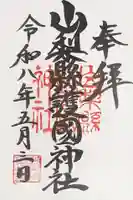 奉拝
山梨縣護國神社
令和八年五月三日